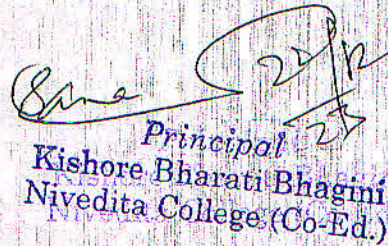 22/12
23
Principal
Kishore Bharati Bhagini
Nivedita College (Co-Ed.)